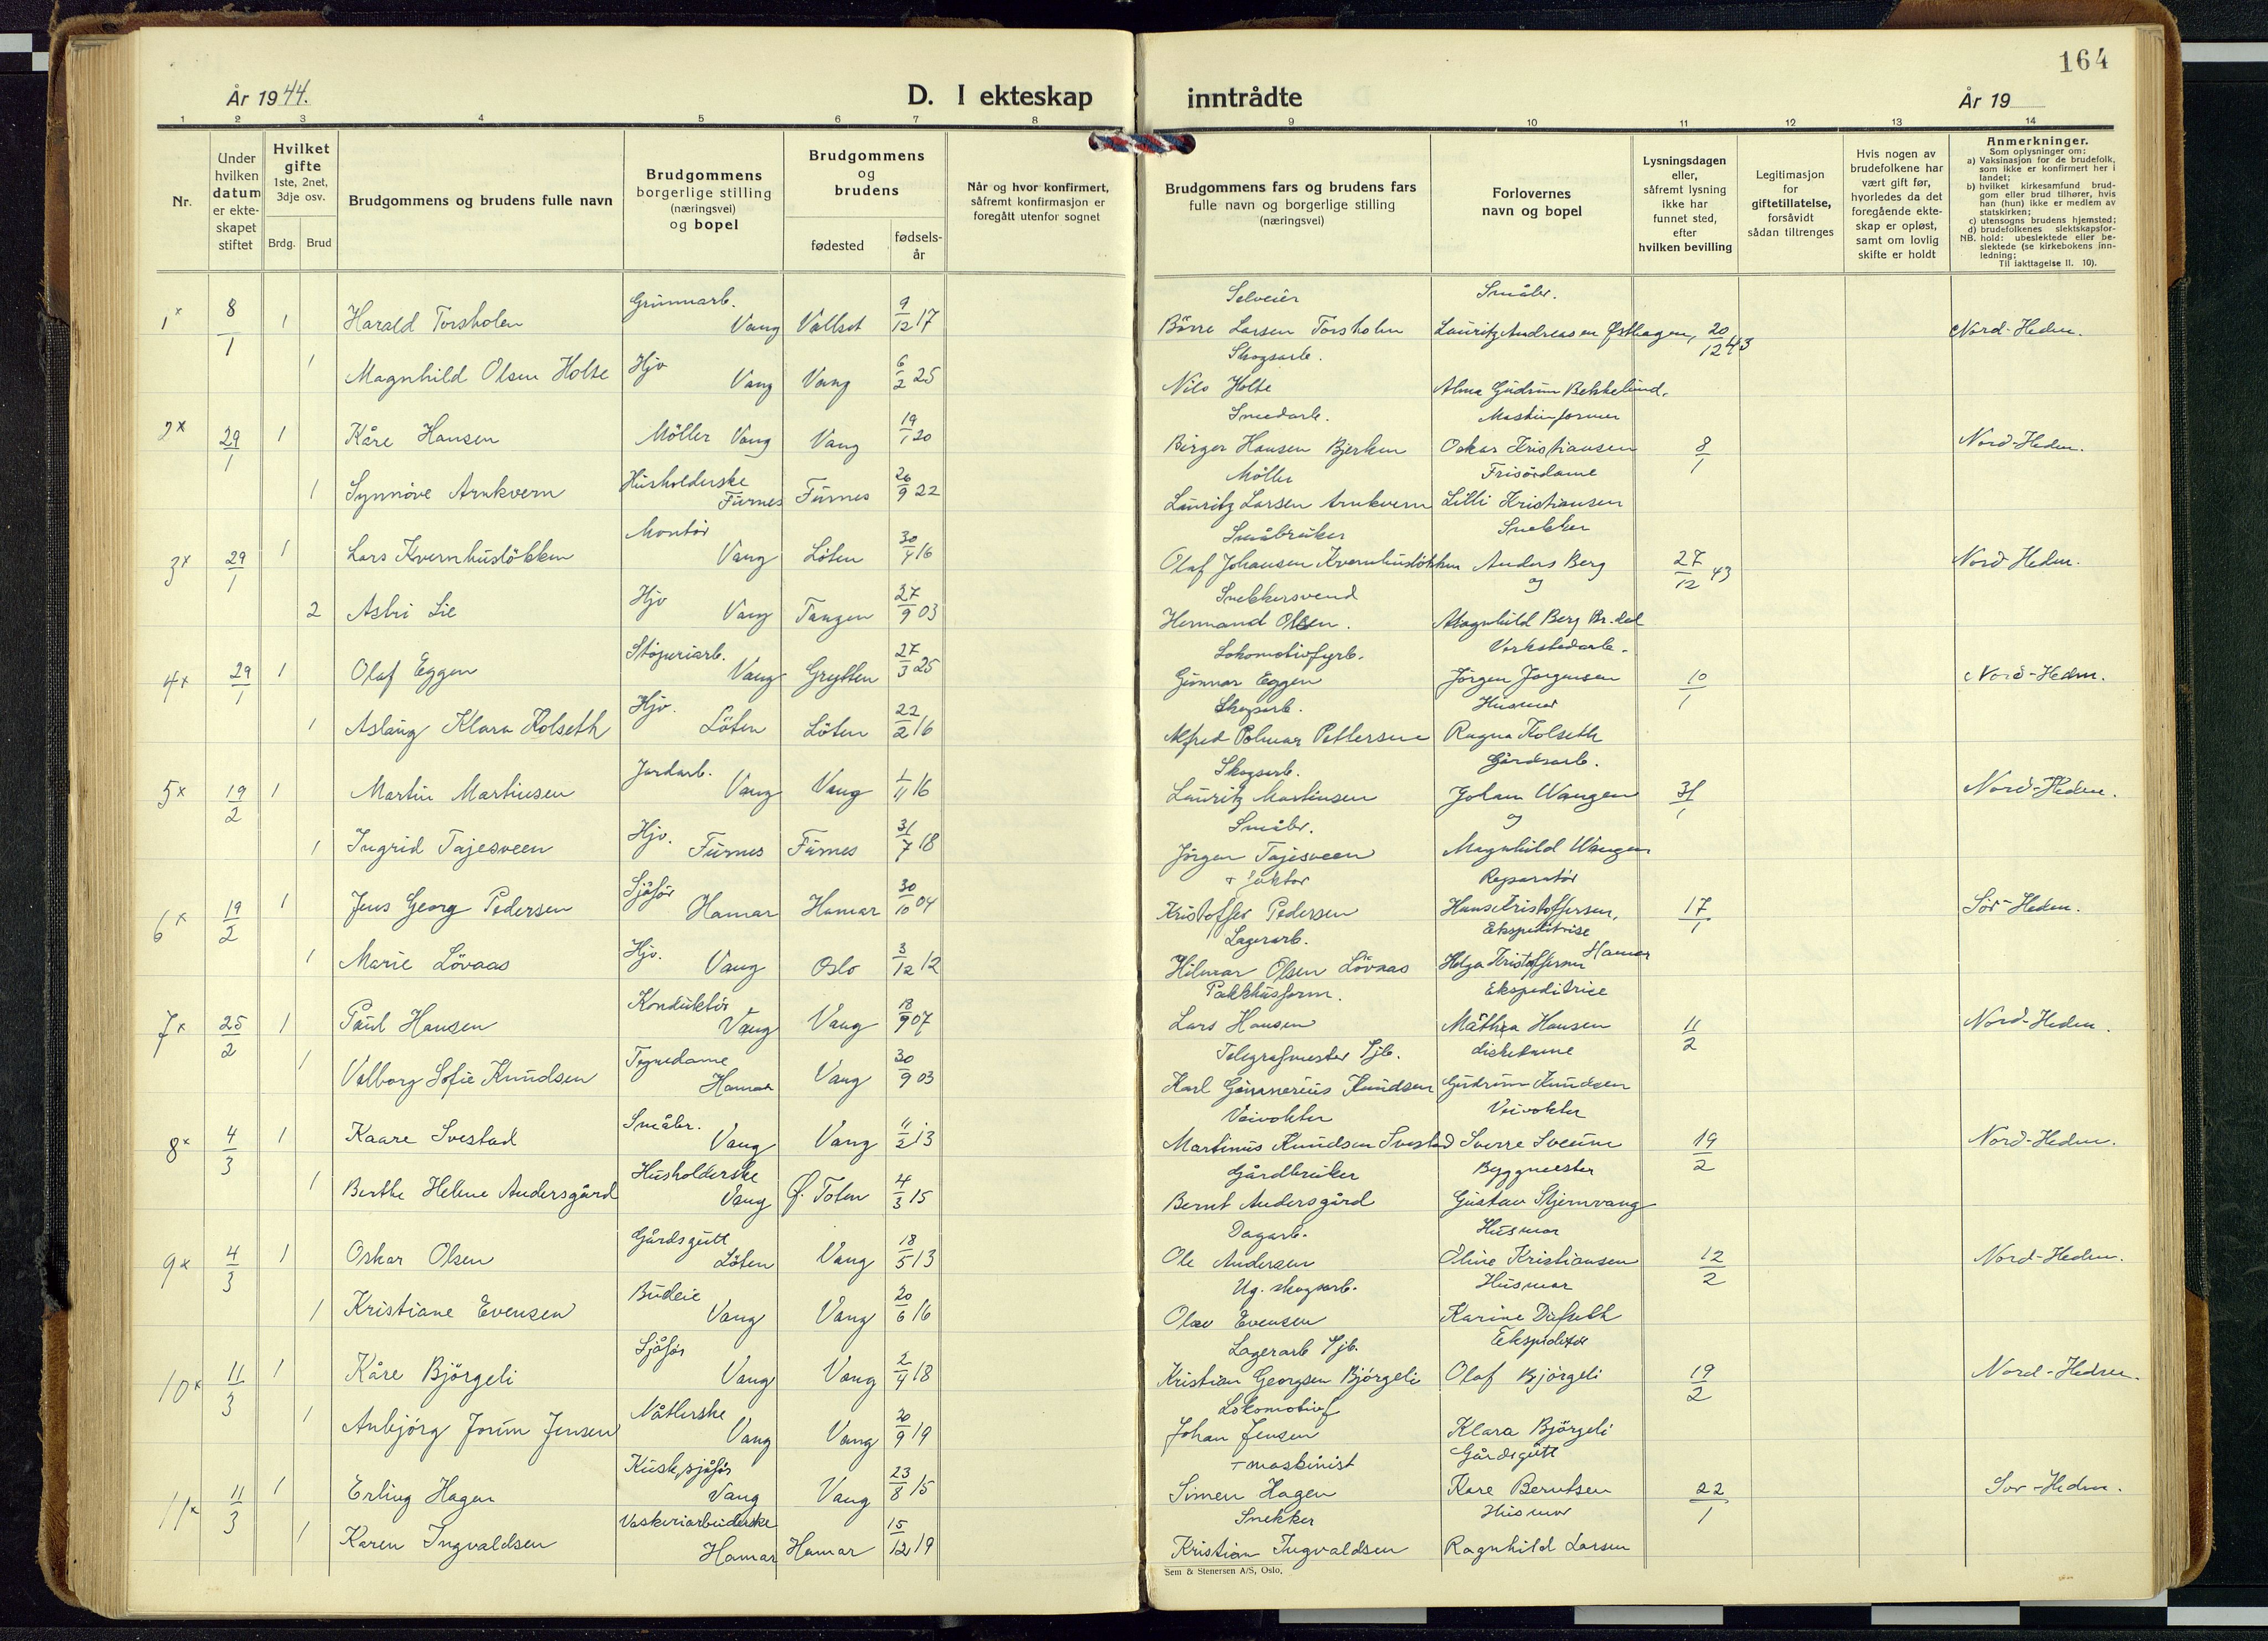 164
År 1944.
D. I ekteskap inntrådte
År 19
1 2 3 4 5 6 7 8 9 10 11 12 13 14
Nr.
Under hvilken datum er ekteskapet stiftet
Hvilket gifte
1ste, 2net, 3dje osv.
Brdg. Brud
Brudgommens og brudens fulle navn
Brudgommens borgerlige stilling (næringsvei) og bopel
Brudgommens og brudens
fødested
fødselsår
Når og hvor konfirmert, såfremt konfirmasjon er foregått utenfor sognet
Brudgommens fars og brudens fars fulle navn og borgerlige stilling (næringsvei)
Forlovernes navn og bopel
Lysningsdagen eller, såfremt lysning ikke har funnet sted, efter hvilken bevilling
Legitimasjon for giftetillatelse, forsåvidt sådan tiltrenges
Hvis nogen av brudefolkene har vært gift før, hvorledes da det foregående ekteskap er opløst, samt om lovlig skifte er holdt
Anmerkninger.
Som oplysninger om:
a) Vaksinasjon for de brudefolk, som ikke er konfirmert her i landet;
b) hvilket kirkesamfund brudgom eller brud tilhører, hvis han (hun) ikke er medlem av statskirken;
c) utensogns brudens hjemsted;
d) brudefolkenes slektskapsforhold: ubeslektede eller beslektede (se kirkebokens innledning;
NB. Til iakttagelse II. 10).
1x 8/1 1 Harald Torsholen Grunnarb. Vang Vallset 9/12 17 Selveier Börre Larsen Torsholen Småbr. Lauritz Andreassen Østhagen, 20/12 43 Nord-Hedm.
1 Magnhild Olsen Holte Hjv Vang Vang 6/2 25 Skogsarb. Nils Holte Alma Gudrun Bekkelund.
2x 29/1 1 Kåre Hansen Möller Vang Vang 19/1 20 Smedarb. Birger Hansen Bjerken Maskinformer Oskar Kristiansen 8/1 Nord-Hedm.
1 Synnöve Arnkvern Husholderske Furnes Furnes 26/9 22 Möller Lauritz Larsen Arnkvern Frisördame Lilli Kristiansen
3x 29/1 1 Lars Kvernhuslökken Montör Vang Löten 30/4 16 Småbruker Olaf Johansen Kvernhuslökken Snekker Anders Berg 27/12 43 Nord Hedm.
2 Astri Lie Hjv Vang Tangen 27/9 03 Snekkersvend Hermand Olsen. og Magnhild Berg Br.dal
4x 29/1 1 Olaf Eggen Støperiarb. Vang Grytten 27/3 25 Lokomotivfyrb. Gunnar Eggen Verkstedarb. Jörgen Jörgensen 10/1 Nord-Hedm.
1 Aslaug Klara Kolseth Hjv. Löten Löten 22/2 16 Skogsarb. Alfred Polmar Pettersen Husmor Ragna Kolseth
5x 19/2 1 Martin Martinsen Jordarb. Vang Vang 1/11 16 Skogsarb. Lauritz Martinsen Gårdsarb. Johan Wangen 31/1 Nord-Hedm.
1 Ingrid Tajesveen Hjv. Furnes Furnes 31/7 18 Småbr. Jörgen Tajesveen og Magnhild Wangen
6x 19/2 1 Jens Georg Pedersen Sjåför Hamar Hamar 30/10 04 + faktor Kristoffer Pedersen Reparatör Hans Kristoffersen, 17/1 Sör-Hedm.
1 Marie Lövaas Hjv. Vang Oslo 3/12 12 Lagerarb. Hilmar Olsen Lövaas Ekspeditrise Helga Kristoffersen Hamar
7x 25/2 1 Paul Hansen Konduktör Vang Vang 18/9 07 Pakkhusform. Lars Hansen Ekspeditrice Mathea Hansen 11/2 Nord-Hedm.
1 Valborg Sofie Knudsen Tegnedame Hamar Vang 30/9 03 Telegrafmester Sjb. Karl Gunnerius Knudsen diskdame Gudrun Knudsen
8x 4/3 1 Kaare Svestad Småbr. Vang Vang 11/2 13 Veivokter Martinus Knudsen Svestad Veivokter Sverre Sveum 19/2 Nord-Hedm.
1 Berthe Helene Andersgård Husholderske Vang Ø. Toten 4/3 15 Gårdbruker Bernt Andersgård Byggmester Gustav Stjernvang
9x 4/3 1 Oskar Olsen Gårdsgutt Löten Vang 18/5 13 Dagarb. Ole Andersen Husmor Eline Kristiansen 12/2 Nord-Hedm.
1 Kristiane Evensen Budeie Vang Vang 20/6 16 Ug. skogsarb. Olav Evensen Husmor Karine Dufseth
10x 11/3 1 Kåre Björgeli Sjåför Vang Vang 2/4 18 Lagerarb Sjb. Kristian Georgsen Björgeli Ekspeditör Olaf Björgeli 19/2 Nord-Hedm.
1 Anbjörg Jorun Jensen Nåtlerske Vang Vang 20/9 19 Lokomotivf Johan Jensen Klara Björgeli
11x 11/3 1 Erling Hagen Kusk, sjåför Vang Vang 23/8 15 + maskinist Simen Hagen Gårdsgutt Kåre Berntsen 22/1 Sör-Hedm.
1 Karen Ingvaldsen Vaskeriarbeiderske Hamar Hamar 15/12 19 Snekker Kristian Ingvaldsen Husmor Ragnhild Larsen
Sem & Stenersen A/S, Oslo.